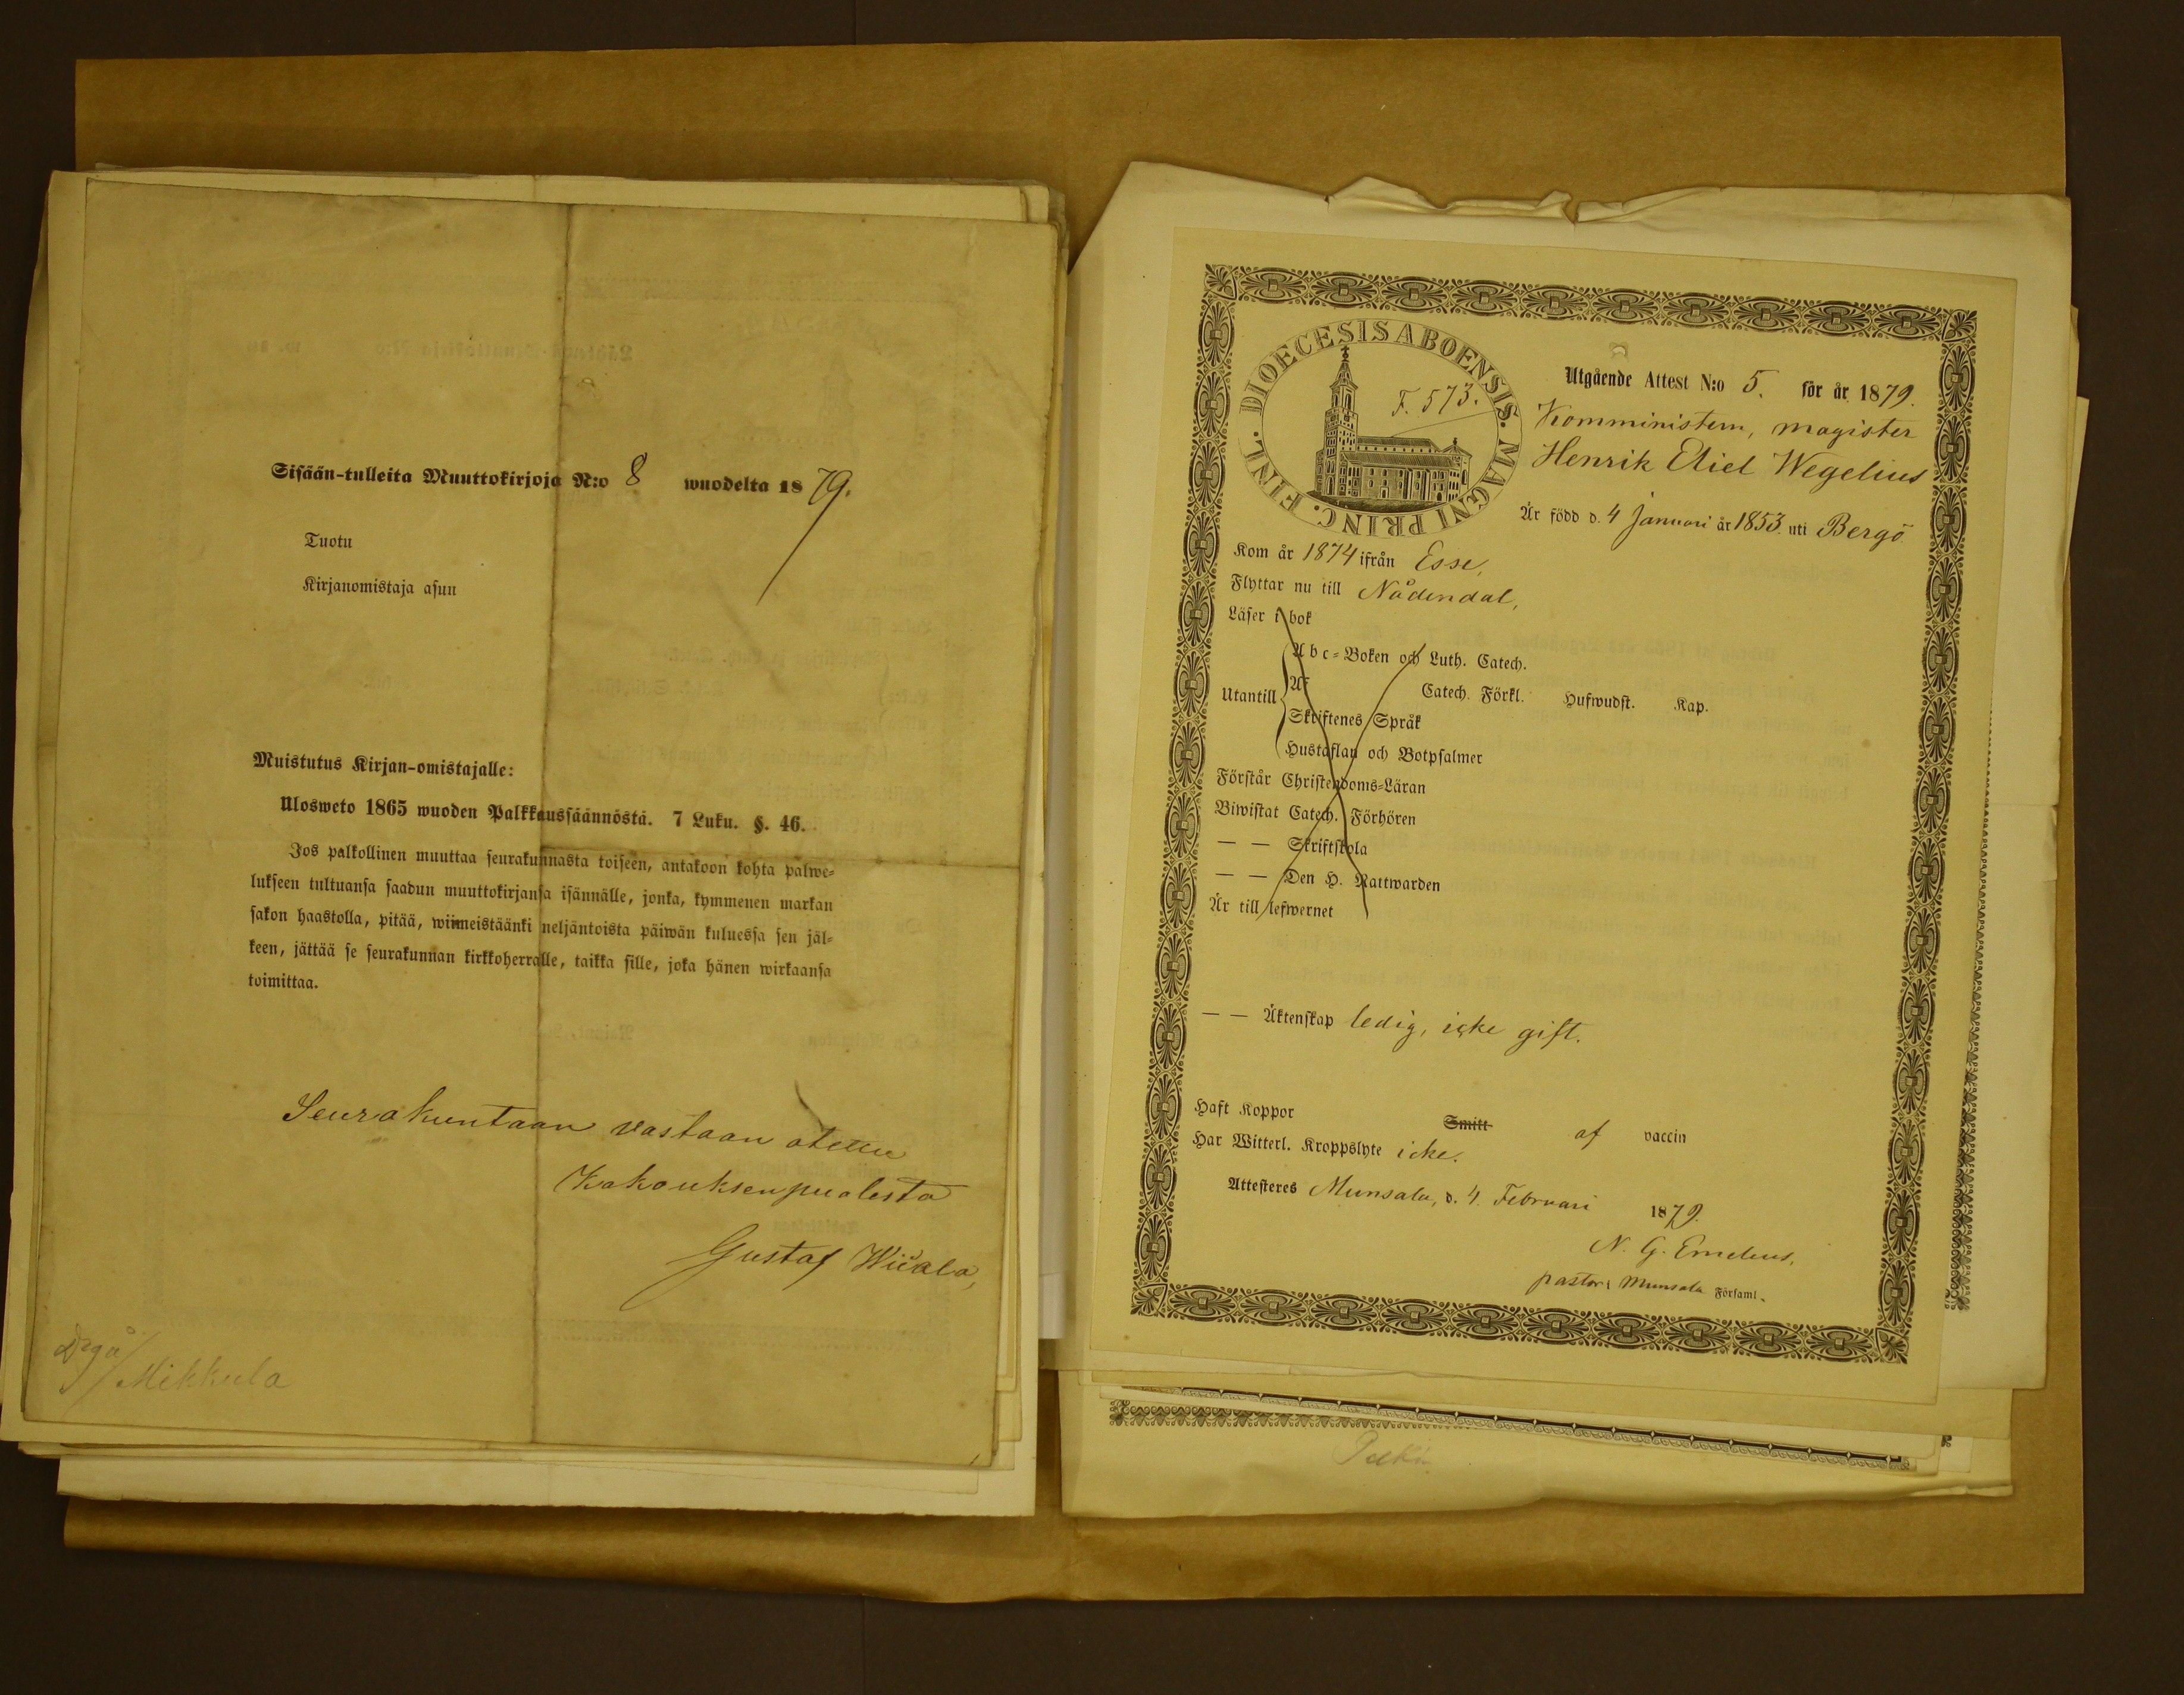 Sisään-tulleita Muuttokirjoja N:o 8 wuodelta 1879.
Tuotu
Kirjanomistaja asuu
Muistutus Kirjan-omistajalle:
Ulosweto 1865 wuoden Palkkaussäännöstä. 7 Luku. §. 46.
Jos palkollinen muuttaa seurakunnasta toiseen, antakoon kohta palwe-
lukseen tultuansa saadun muuttokirjansa isännälle, jonka, kymmenen markan
sakon haastolla, pitää, wiimeistäänki neljäntoista päiwän kuluessa sen jäl-
keen, jättää se seurakunnan kirkkoherralle, taikka sille, joka hänen wirkaansa
toimittaa.
Seurakuntaan vastaan otettu
Kakouksen puolesta
Gustaf
Mikkula
DIOECESIS ABOENSIS. MAGNI PRINC. FINL.
F. 573.
Utgående Attest N:o 5. för år 1879.
Komministern, magister
Henrik Eliel Wegelius
Är född d. 4 Januari år 1853. uti Bergö
Kom år 1874 ifrån Esse,
Flyttar nu till Nådendal,
Läser i bok
Utantill
Abc-Boken och Luth. Catech.
Af Catech. Förkl. Hufwudst. Kap.
Skriftenes Språk
Hustaflan och Botpsalmer
Förstår Christendoms-Läran
Biwistat Catech. Förhören
— — Skriftskola
— — Den H. Nattwarden
Är till lefwernet
— — Äktenskap ledig, icke gift.
Haft Koppor Smitt af vaccin
Har Witterl. Kroppslyte icke.
Attesteres Munsala, d. 4. Februari 1879.
N. G. Emeleus,
pastor i Munsala Församl.